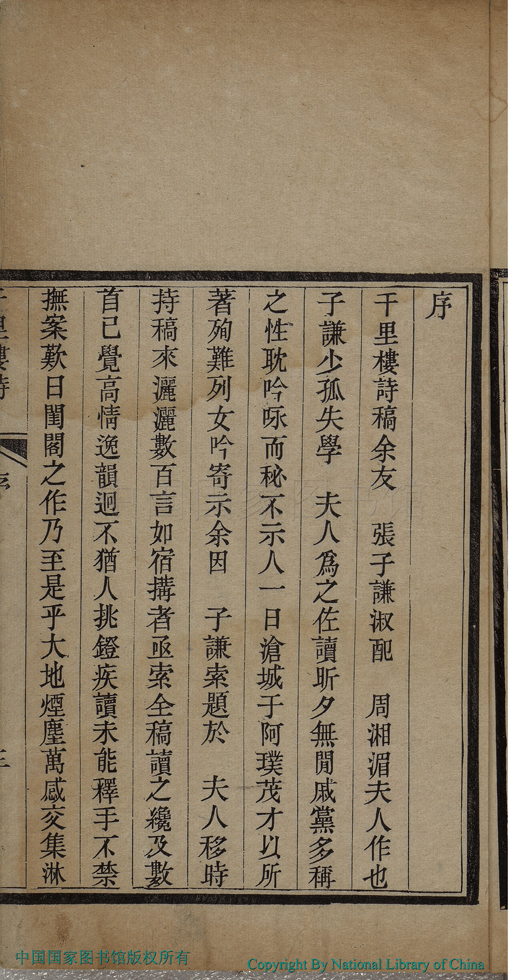 序
千里樓詩稿余友　張子謙淑配　周湘湄夫人作也
子謙少孤失學　夫人爲之佐讀昕夕無閒戚黨多稱
之性耽吟咏而秘不示人一日滄城于阿璞茂才以所
著殉難列女吟寄示余因　子謙索題於　夫人移時
持稿來灑灑數百言如宿搆者亟索全稿讀之纔及數
首已覺高情逸韻迥不猶人挑鐙疾讀未能釋手不禁
撫案歎曰閨閣之作乃至是乎大地煙塵萬感交集淋
千里樓詩　序
中国国家图书馆版权所有
Copyright By National Library of China